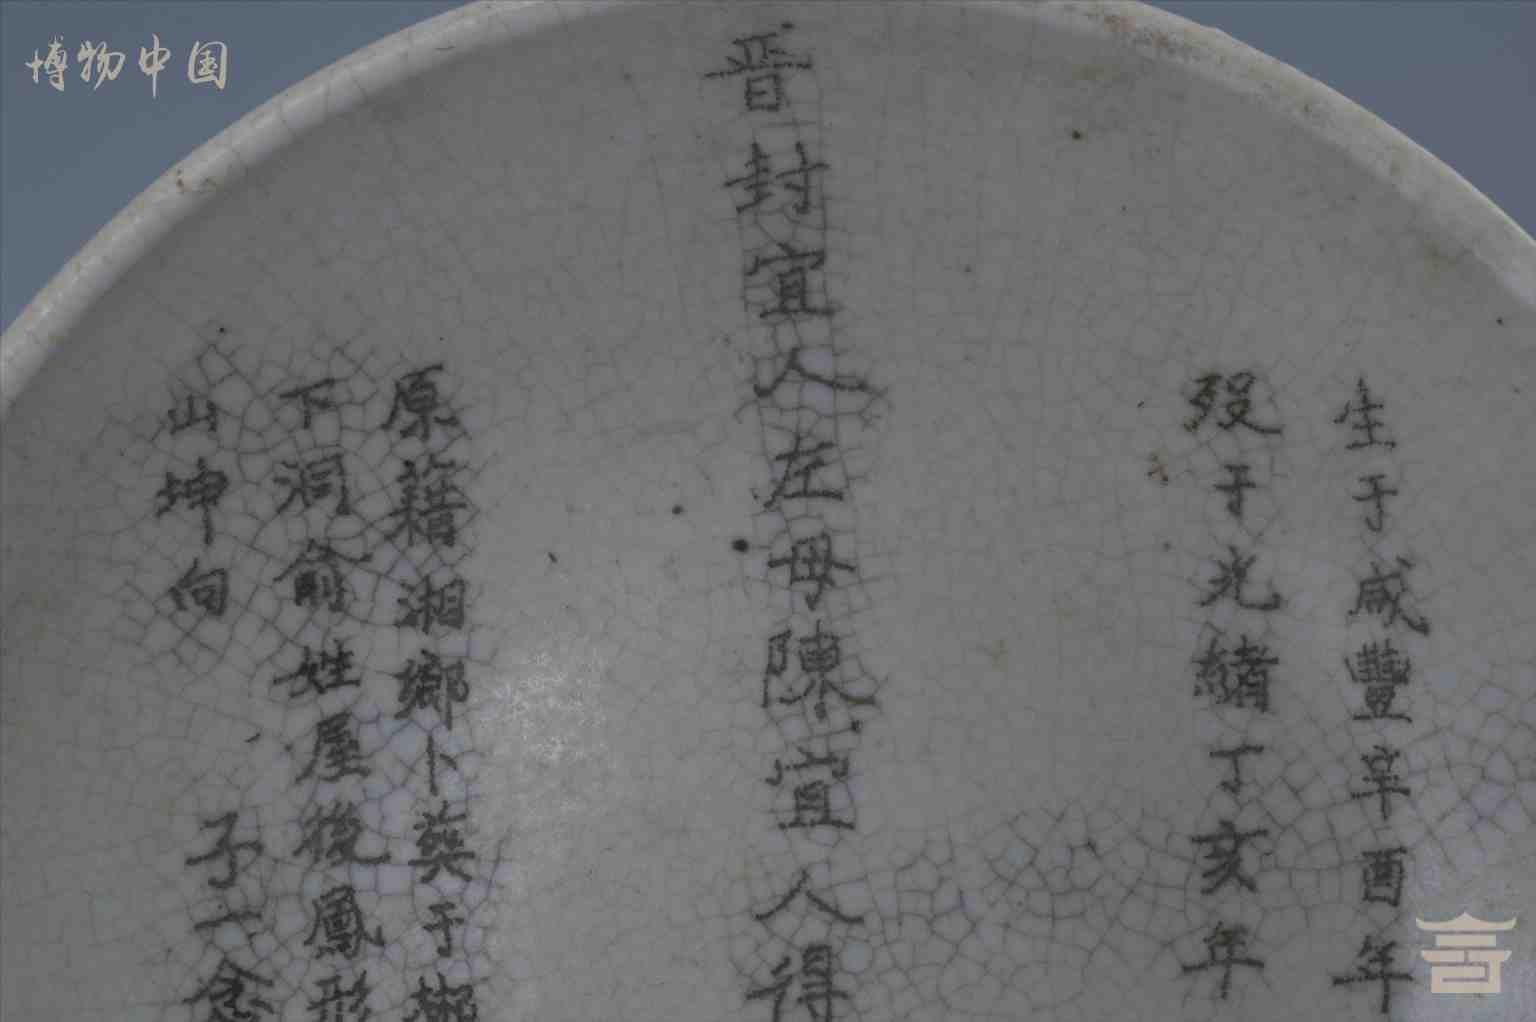 博物中国
生于咸豐辛酉年
歿于光緒丁亥年
晋封宜人左母陳宜人得
原籍湘鄉卜葬于郴
下洞俞姓屋後鳳形
山坤向
子一念